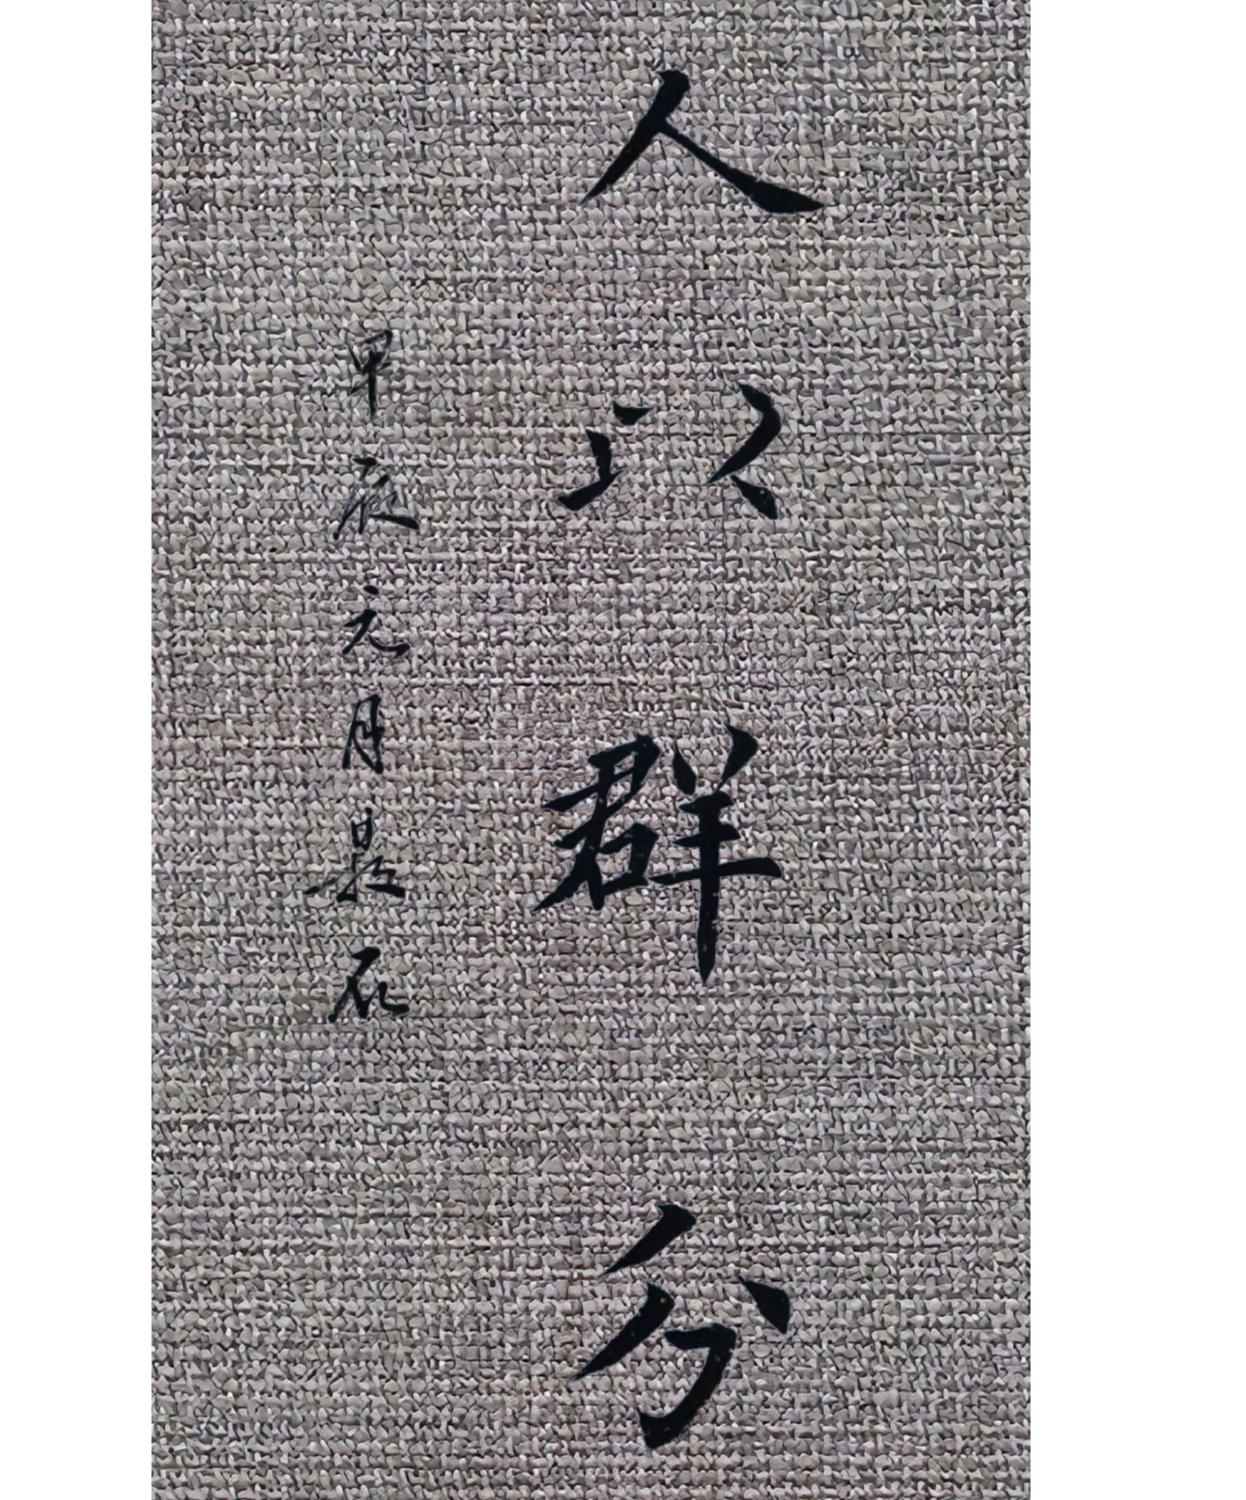 人以群分
甲辰元月